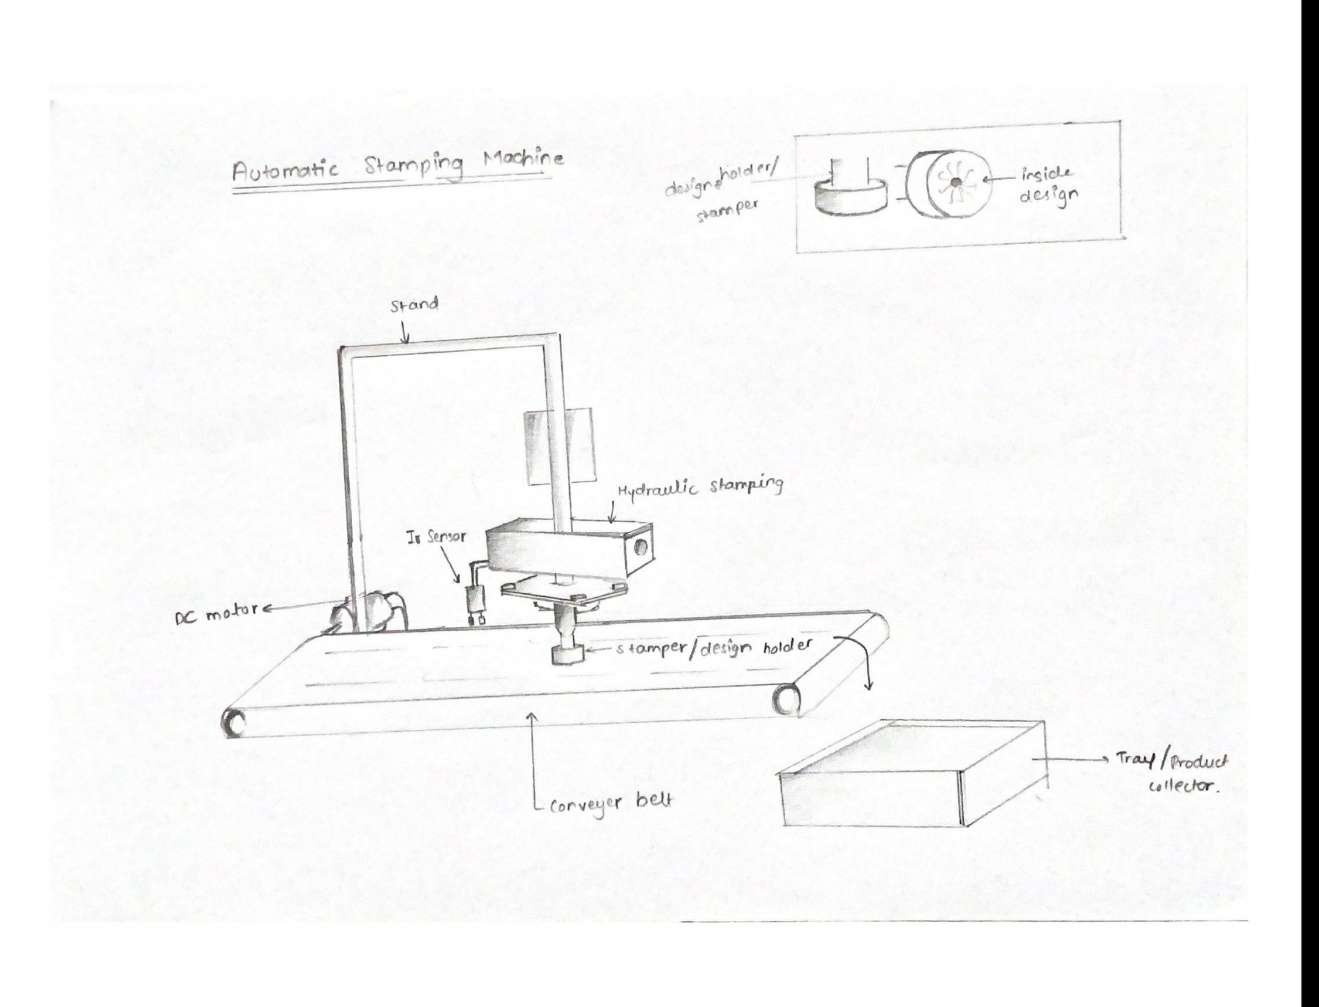 Automatic Stamping Machine
designe holder/
stamper
inside
design
Stand
Hydraulic stamping
IR Sensor
DC motor
stamper/design holder
conveyer belt
Tray/Product
collector.